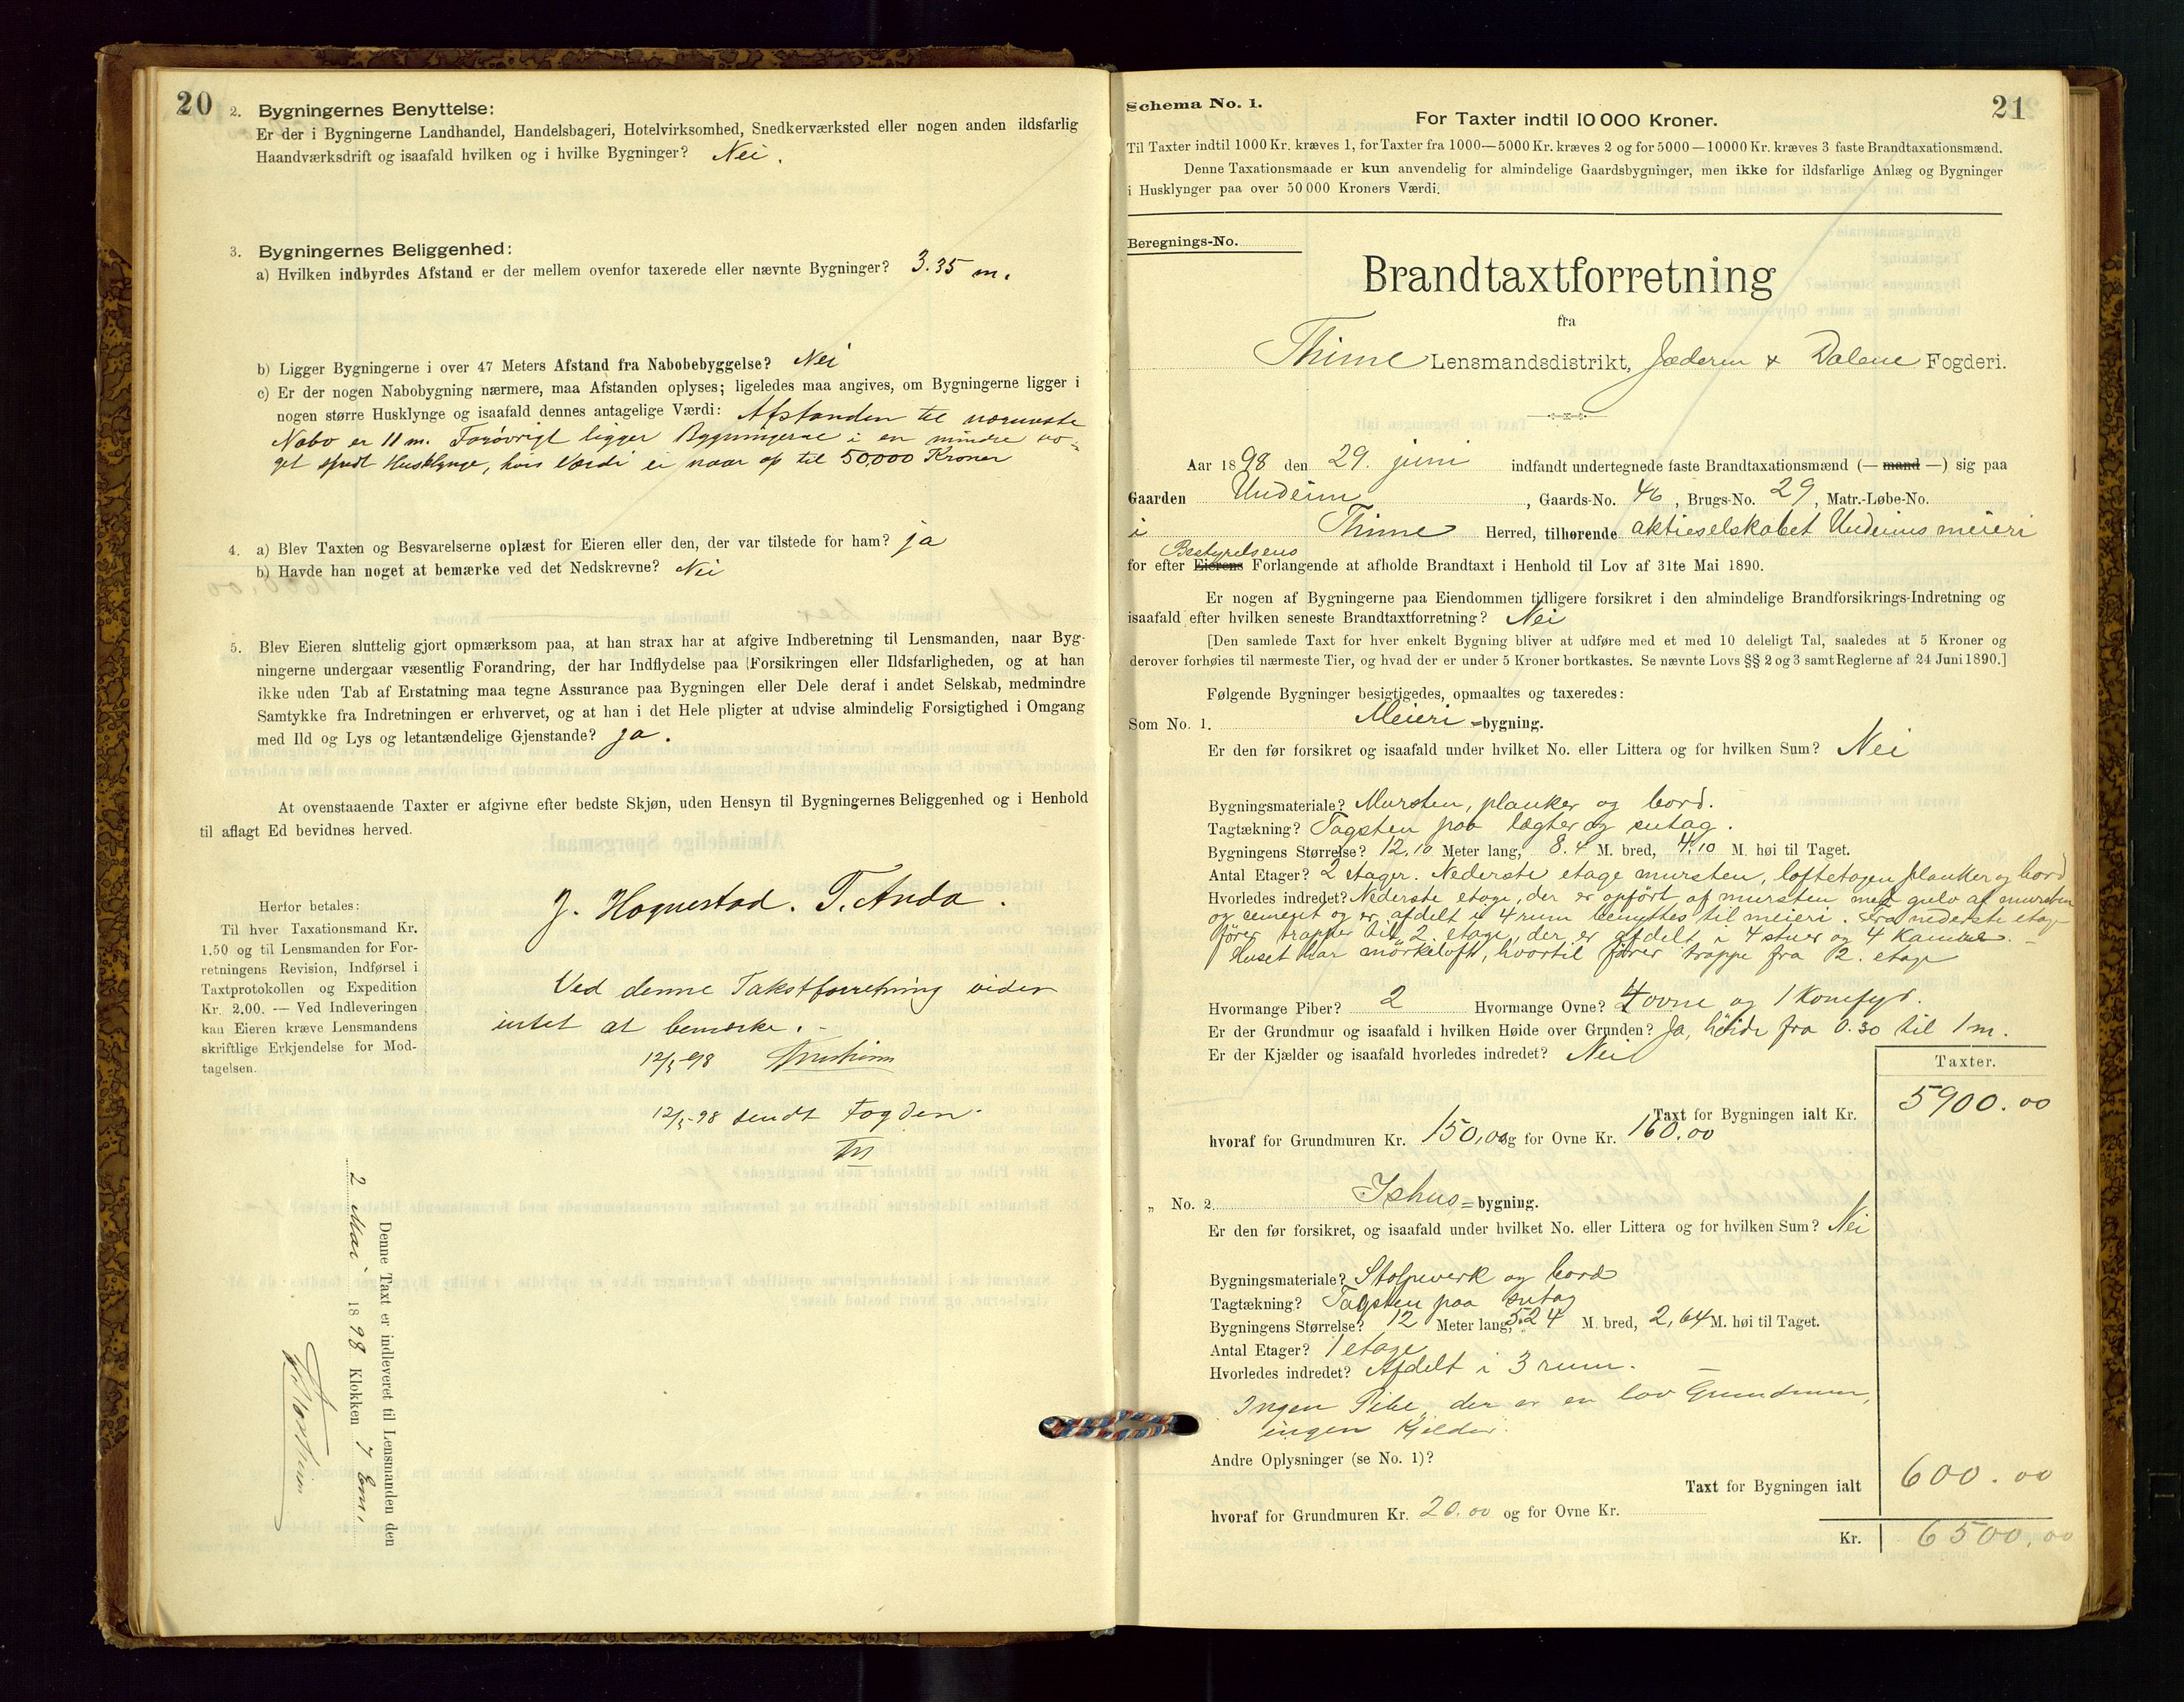 20
2. Bygningernes Benyttelse:
Er der i Bygningerne Landhandel, Handelsbageri, Hotelvirksomhed, Snedkerværksted eller nogen anden ildsfarlig
Haandværksdrift og isaafald hvilken og i hvilke Bygninger? Nei.
3. Bygningernes Beliggenhed:
a) Hvilken indbyrdes Afstand er der mellem ovenfor taxerede eller nævnte Bygninger? 3.35 m.
b) Ligger Bygningerne i over 47 Meters Afstand fra Nabobebyggelse? Nei
c) Er der nogen Nabobygning nærmere, maa Afstanden oplyses; ligeledes maa angives, om Bygningerne ligger i
nogen større Husklynge og isaafald dennes antagelige Værdi: Afstanden til nærmeste
Nabo er 11 m. Forøvrigt ligger Bygningerne i en mindre no-
get spredt Husklynge, hvis Værdi ei naar op til 50,000 Kroner
4. a) Blev Taxten og Besvarelserne oplæst for Eieren eller den, der var tilstede for ham? ja
b) Havde han noget at bemærke ved det Nedskrevne? Nei
5. Blev Eieren sluttelig gjort opmærksom paa, at han strax har at afgive Indberetning til Lensmanden, naar Byg-
ningerne undergaar væsentlig Forandring, der har Indflydelse paa Forsikringen eller Ildsfarligheden, og at han
ikke uden Tab af Erstatning maa tegne Assurance paa Bygningen eller Dele deraf i andet Selskab, medmindre
Samtykke fra Indretningen er erhvervet, og at han i det Hele pligter at udvise almindelig Forsigtighed i Omgang
med Ild og Lys og letantændelige Gjenstande? ja.
At ovenstaaende Taxter er afgivne efter bedste Skjøn, uden Hensyn til Bygningernes Beliggenhed og i Henhold
til aflagt Ed bevidnes herved.
J. Hognestad. T. Anda.
Herfor betales:
Til hver Taxationsmand Kr.
1.50 og til Lensmanden for For-
retningens Revision, Indførsel i
Taxtprotokollen og Expedition
Kr. 2.00. — Ved Indleveringen
kan Eieren kræve Lensmandens
skriftlige Erkjendelse for Mod-
tagelsen.
Ved denne Takstforretning vides
intet at bemærke.
12/5-98
12/5-98 sendt Fogden.
Denne Taxt er indleveret til Lensmanden den
2 Mai 1898 Klokken 7 Em.
Schema No. 1.
21
For Taxter indtil 10 000 Kroner.
Til Taxter indtil 1000 Kr. kræves 1, for Taxter fra 1000—5000 Kr. kræves 2 og for 5000—10000 Kr. kræves 3 faste Brandtaxationsmænd.
Denne Taxationsmaade er kun anvendelig for almindelige Gaardsbygninger, men ikke for ildsfarlige Anlæg og Bygninger
i Husklynger paa over 50 000 Kroners Værdi.
Beregnings-No.
Brandtaxtforretning
fra
Thime Lensmandsdistrikt, Jæderen & Dalene Fogderi.
Aar 1898 den 29. juni indfandt undertegnede faste Brandtaxationsmænd (— mand —) sig paa
Gaarden Undeim, Gaards-No. 46, Brugs-No. 29, Matr.-Løbe-No.
i Thime Herred, tilhørende aktieselskabet Undeims meieri
Bestyrelsens
for efter Eierens Forlangende at afholde Brandtaxt i Henhold til Lov af 31te Mai 1890.
Er nogen af Bygningerne paa Eiendommen tidligere forsikret i den almindelige Brandforsikrings-Indretning og
isaafald efter hvilken seneste Brandtaxtforretning? Nei
[Den samlede Taxt for hver enkelt Bygning bliver at udføre med et med 10 deleligt Tal, saaledes at 5 Kroner og
derover forhøies til nærmeste Tier, og hvad der er under 5 Kroner bortkastes. Se nævnte Lovs §§ 2 og 3 samt Reglerne af 24 Juni 1890.]
Følgende Bygninger besigtigedes, opmaaltes og taxeredes:
Som No. 1. Meieri=bygning.
Er den før forsikret og isaafald under hvilket No. eller Littera og for hvilken Sum? Nei
Bygningsmateriale? Mursten, planker og bord.
Tagtækning? Tagsten paa lægter og sutag.
Bygningens Størrelse? 12.10 Meter lang, 8.4 M. bred, 4.10 M. høi til Taget.
Antal Etager? 2 etager. Nederste etage mursten, loftetagen planker og bord
Hvorledes indret? Nederste etage, der er opført af mursten med gulv af mursten
og cement og er afdelt i 4 rum benyttes til meieri. Fra nederste etage
fører trapper til 2. etage, der er afdelt i 4 stuer og 4 Kamre.
Huset har mørkeloft, hvortil fører trappe fra 2. etage
Hvormange Piber? 2 Hvormange Ovne? 4 ovne og 1 Komfyr.
Er der Grundmur og isaafald i hvilken Høide over Grunden? Ja, høide fra 0.30 til 1 m.
Er der Kjælder og isaafald hvorledes indredet? Nei
Taxter.
Taxt for Bygningen ialt Kr. 5900.00
hvoraf for Grundmuren Kr. 150,00 og for Ovne Kr. 160.00
„ No. 2 Ishus=bygning.
Er den før forsikret, og isaafald under hvilket No. eller Littera og for hvilken Sum? Nei
Bygningsmateriale? Stolpeverk og bord
Tagtækning? Tagsten paa sutag
Bygningens Størrelse? 12 Meter lang, 5.24 M. bred, 2,64 M. høi til Taget.
Antal Etager? 1 etage
Hvorledes indredet? Afdelt i 3 rum. —
Ingen Pibe, der er en lav Grundmur,
ingen Kjelder.
Andre Oplysninger (se No. 1)?
Taxt for Bygningen ialt 600.00
hvoraf for Grundmuren Kr. 20.00 og for Ovne Kr.
Kr. 6500.00